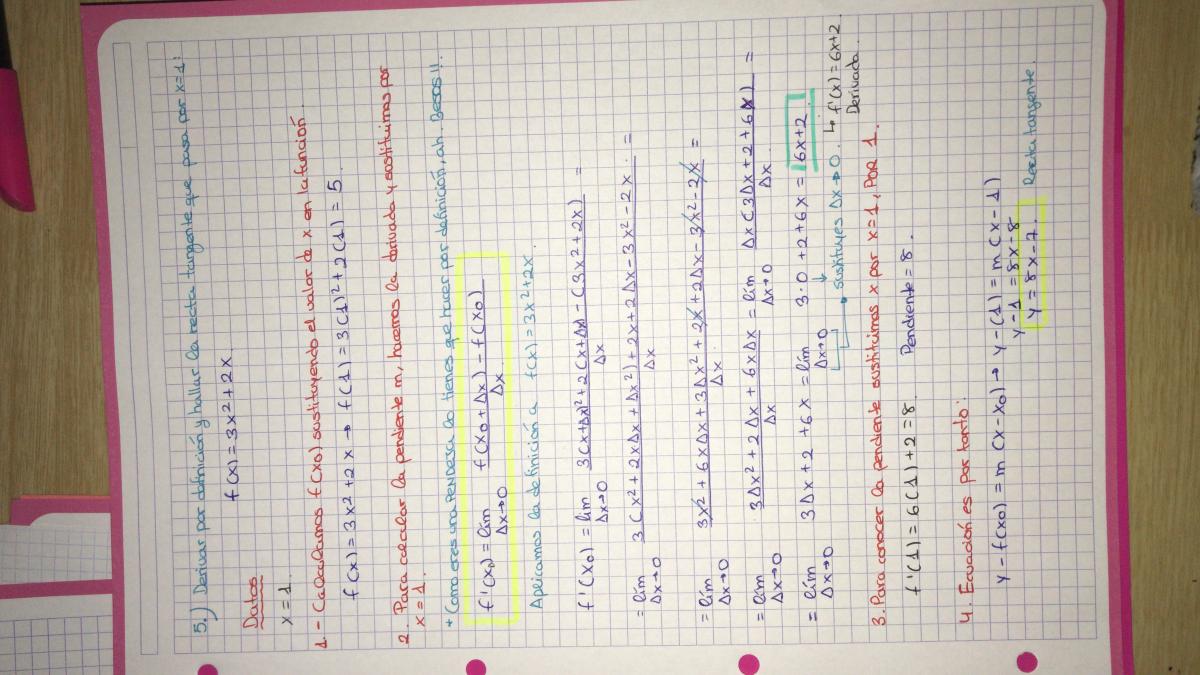 5.) Derivar por definición y hallar la recta tangente que pasa por x=1:
f(x)=3x²+2x.
Datos
x=1.
1.- Calculamos f(x0) sustituyendo el valor de x en la función.
f(x)=3x²+2x → f(1)=3(1)²+2(1)=5.
2. Para calcular la pendiente m, hacemos la derivada y sustituimos por
x=1.
* Como eres una PENDEJA lo tienes que hacer por definición, ah. Besos!!.
f'(x0)=lím f(x0+Δx)-f(x0)
Δx→0 Δx.
Aplicamos la definición a f(x)=3x²+2x.
f'(x0)=lím 3(x+Δx)²+2(x+Δx)-(3x²+2x) =
Δx→0 Δx
=lím 3(x²+2xΔx+Δx²)+2x+2Δx-3x²-2x. =
Δx→0 Δx
=lím 3x²+6xΔx+3Δx²+2x+2Δx-3x²-2x =
Δx→0 Δx.
=lím 3Δx²+2Δx+6xΔx =lím Δx(3Δx+2+6x) =
Δx→0 Δx Δx→0 Δx.
=lím 3Δx+2+6x =lím 3·0+2+6x= 6x+2.
Δx→0 Δx→0
sustituyes Δx→0. ↳ f'(x)=6x+2
Derivada.
3. Para conocer la pendiente sustituimos x por x=1, POR 1.
f'(1)=6(1)+2=8. Pendiente=8.
4. Ecuación es por tanto:
y-f(x0)=m(x-x0) → y-(1)=m(x-1)
y-1=8x-8
y=8x-7. Recta tangente.